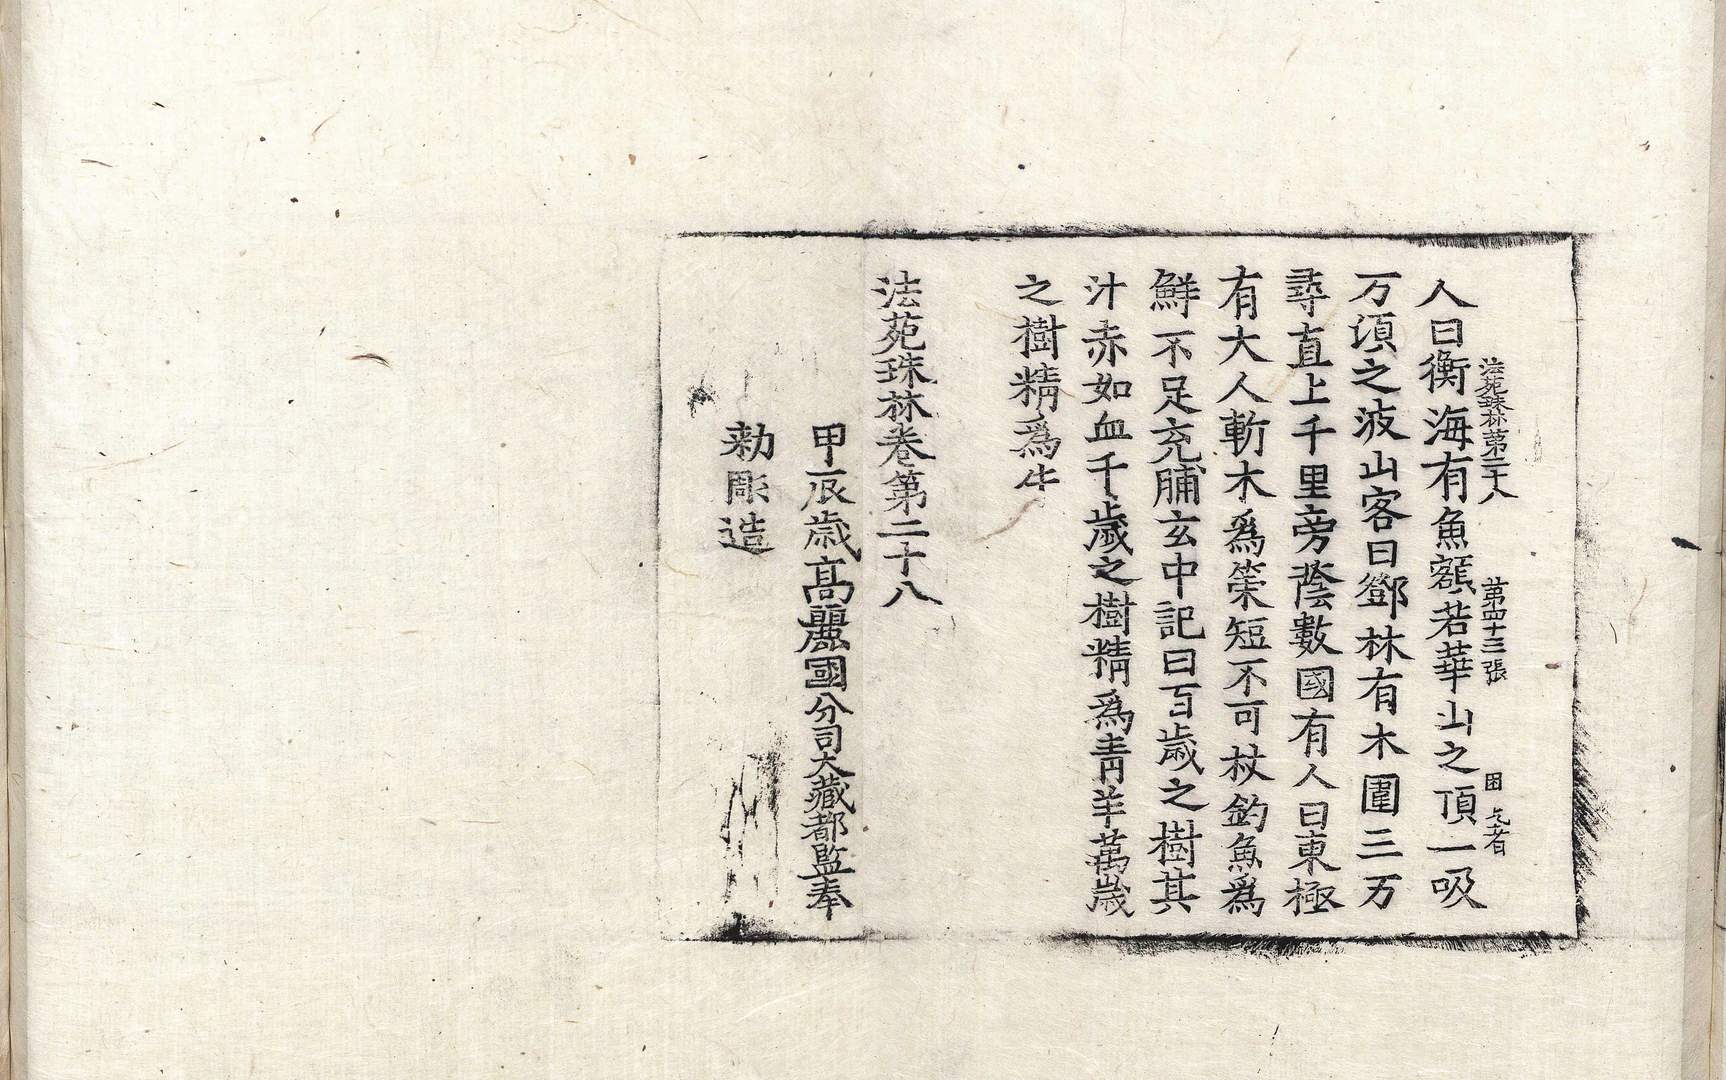 法苑珠林第二十八 第四十三張 困
人曰衡海有魚額若華山之頂一吸
万頃之波山客曰鄧林有木圍三万
尋直上千里旁蔭數國有人曰東極
有大人斬木爲策短不可杖釣魚爲
鮮不足充脯玄中記曰百歲之樹其
汁赤如血千歲之樹精爲靑羊萬歲
之樹精爲牛
法苑珠林卷第二十八
甲辰歲高麗國分司大藏都監奉
勅彫造